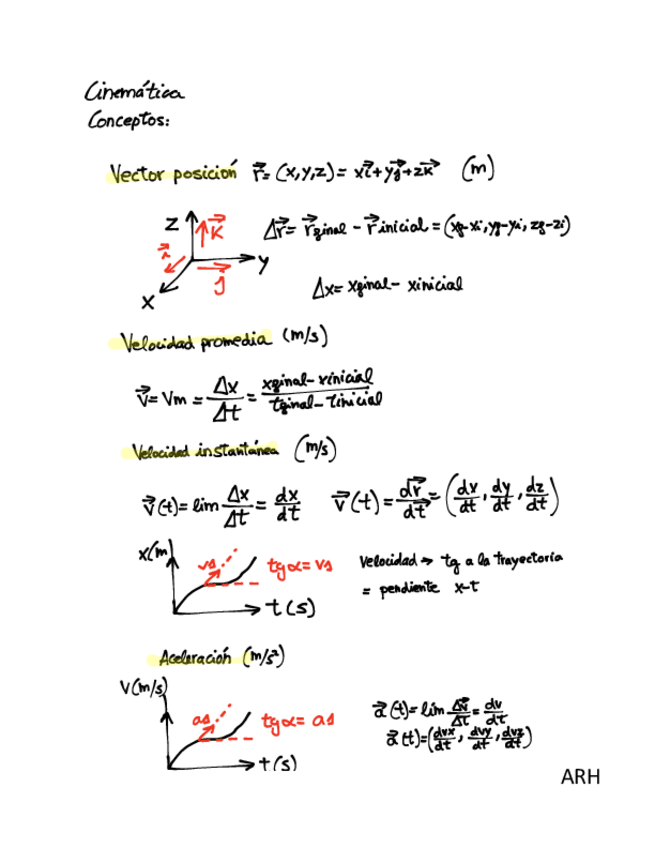 Cinemática
Conceptos:
Vector posición r⃗ = (x,y,z) = xi⃗ + yj⃗ + zk⃗ (m)
Z k⃗ i⃗ j⃗ Y X
Δr⃗ = r⃗final - r⃗inicial = (xf-xi, yf-yi, zf-zi)
Δx = xfinal - xinicial
Velocidad promedia (m/s)
v⃗ = Vm = Δx/Δt = xfinal - xinicial / tfinal - tinicial
Velocidad instantánea (m/s)
v⃗(t) = lim Δx/Δt = dx/dt v⃗(t) = dr⃗/dt = (dx/dt, dy/dt, dz/dt)
x(m) vs tgα = vs t(s)
Velocidad → tg a la trayectoria
= pendiente x-t
Aceleración (m/s²)
V(m/s) as tgα = as t(s)
a⃗(t) = lim Δv⃗/Δt = dv/dt
a⃗(t) = (dvx/dt, dvy/dt, dvz/dt)
ARH